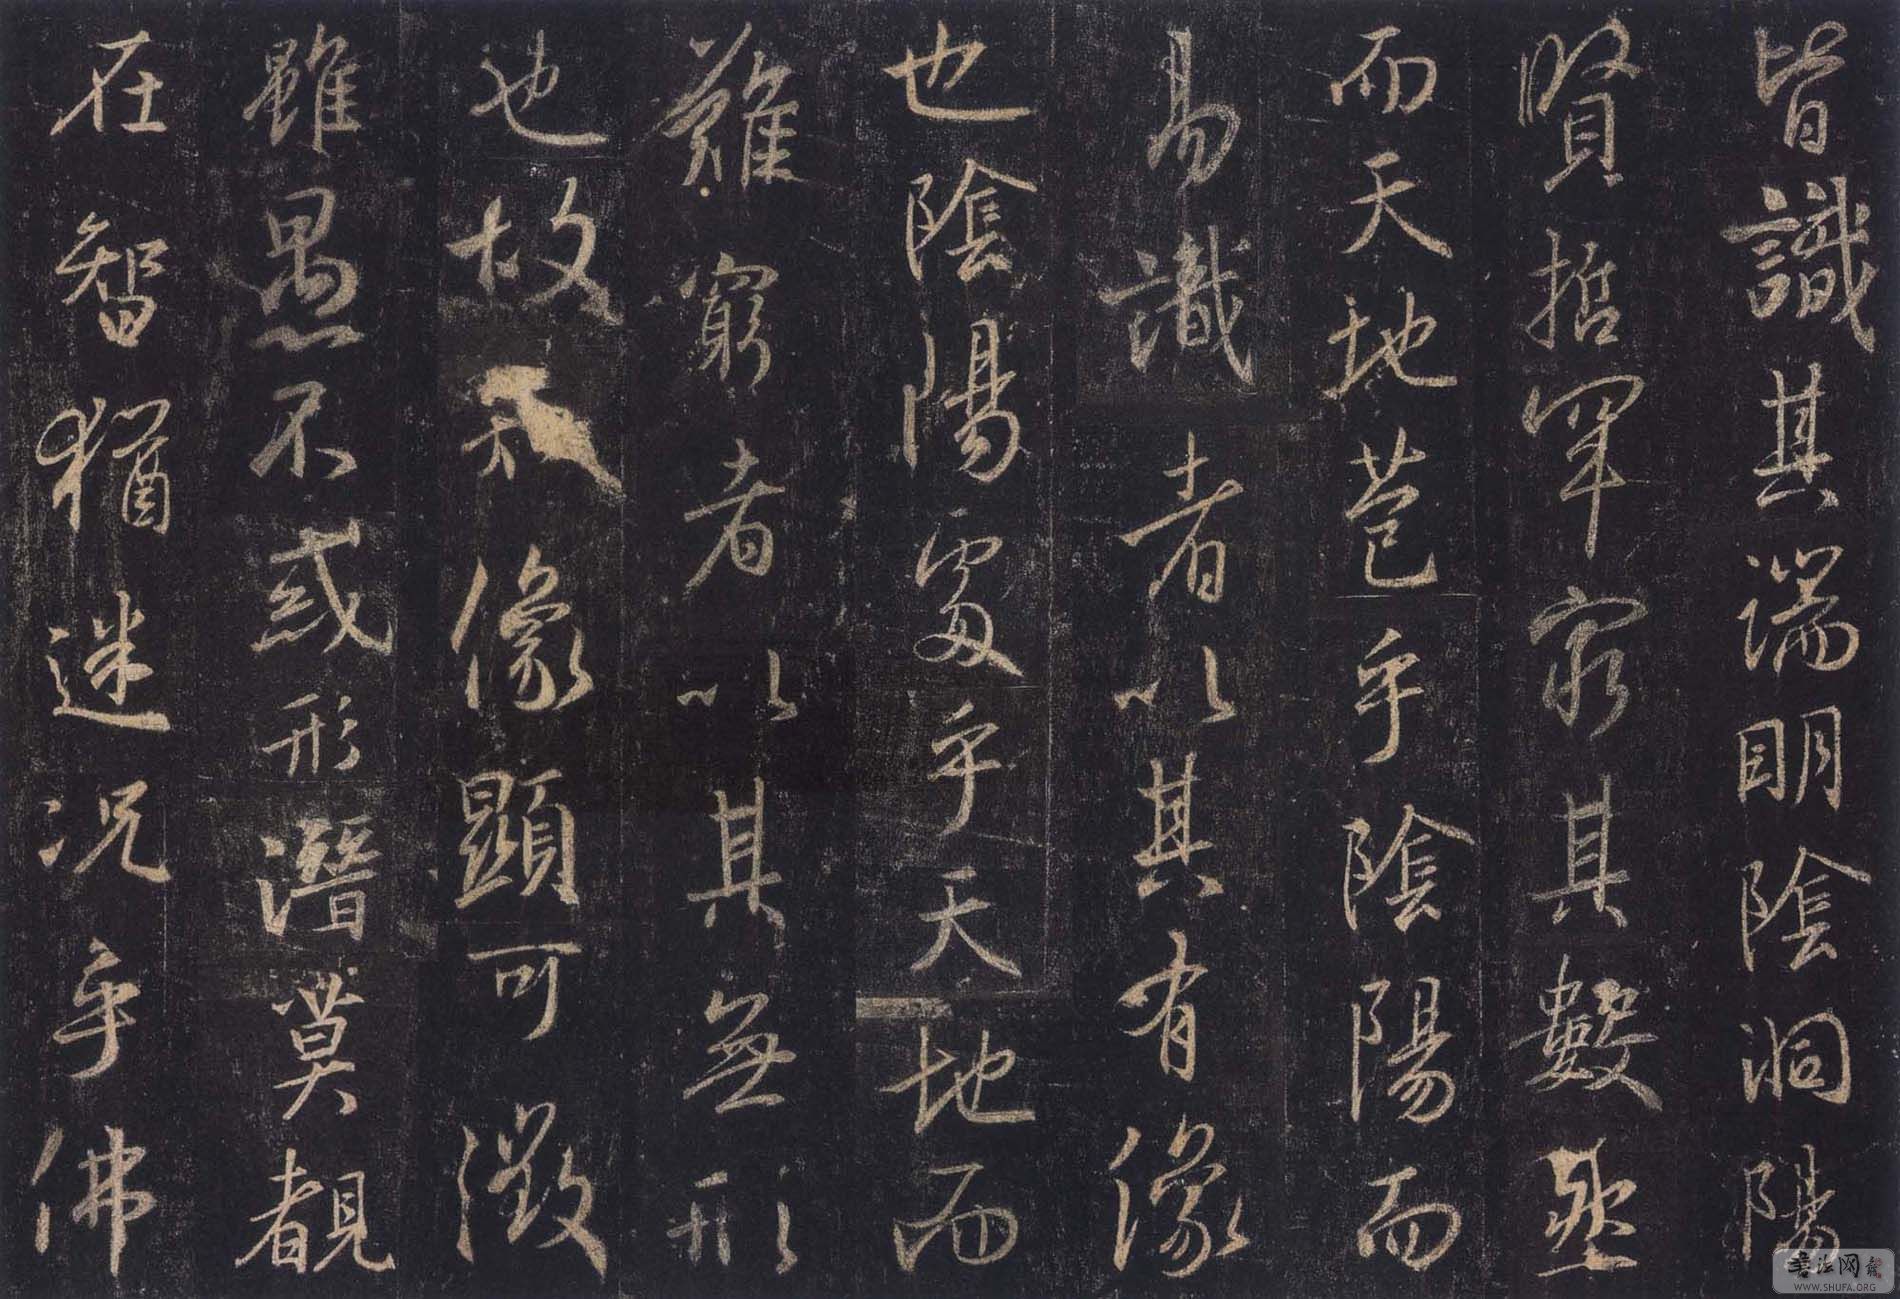 皆識其端明陰洞陽
賢哲罕窮其數然
而天地苞乎陰陽而
易識者以其有像
也陰陽處乎天地而
難窮者以其無形
也故知像顯可徵
雖愚不惑形潛莫覩
在智猶迷況乎佛
書法网
WWW.SHUFA.ORG